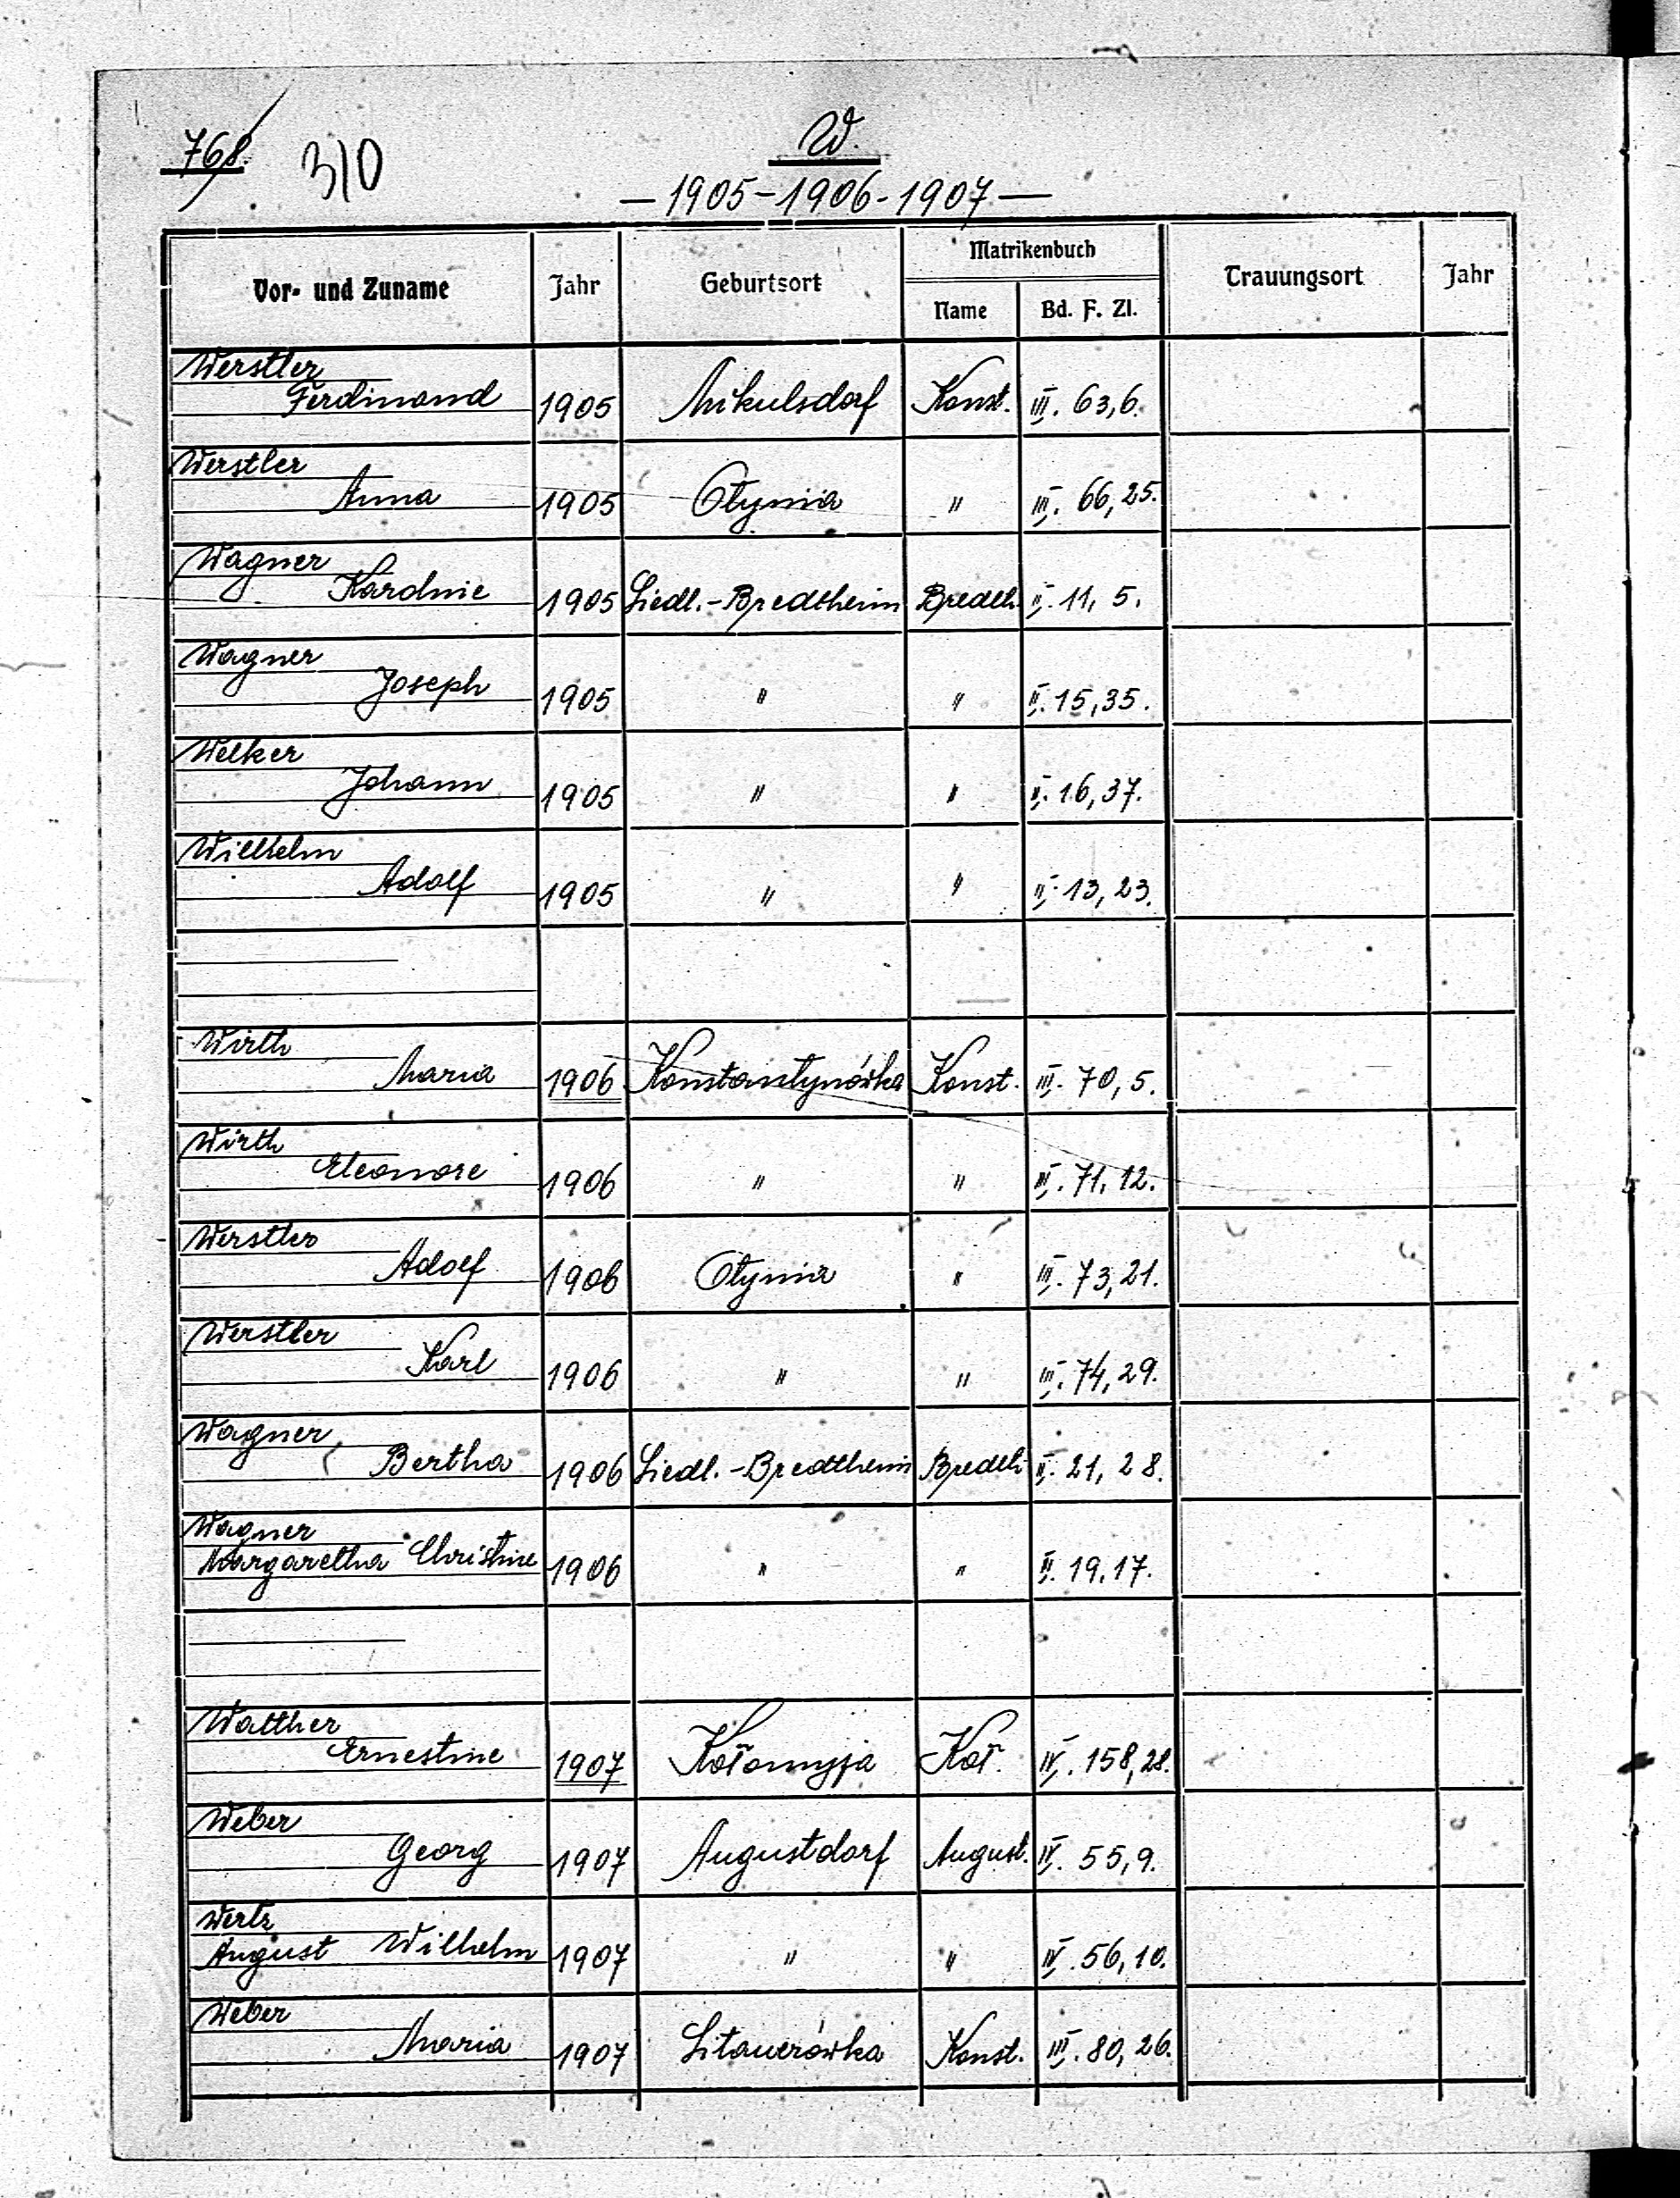 768. 310
W.
— 1905 - 1906 - 1907 —
Vor- und Zuname Jahr Geburtsort Matrikenbuch Trauungsort Jahr
Name Bd. F. Zl.
Werstler
Ferdinand 1905 Mikulsdorf Konst. III. 63,6.
Werstler
Anna 1905 Otynia " III. 66,25.
Wagner
Karolnie 1905 Siedl.-Bredtheim Bredth. II. 11, 5.
Wagner
Joseph 1905 " " II. 15,35.
Welker
Johann 1905 " " II. 16,37.
Wilhelm
Adolf 1905 " " II. 13,23.
Wirth
Maria 1906 Konstantynówka Konst. III. 70,5.
Wirth
Eleonore 1906 " " III. 71,12.
Werstler
Adolf 1906 Otynia " III. 73,21.
Werstler
Karl 1906 " " III. 74,29.
Wagner
Bertha 1906 Siedl.-Bredtheim Bredth. II. 21, 28.
Wagner
Margaretha Christine 1906 " " II. 19,17.
Walther
Ernestine 1907 Kołomyja Koł. IV. 158,28.
Weber
Georg 1907 Augustdorf August. IV. 55,9.
Wertz
August Wilhelm 1907 " " IV. 56,10.
Weber
Maria 1907 Sitauerówka Konst. III. 80,26.